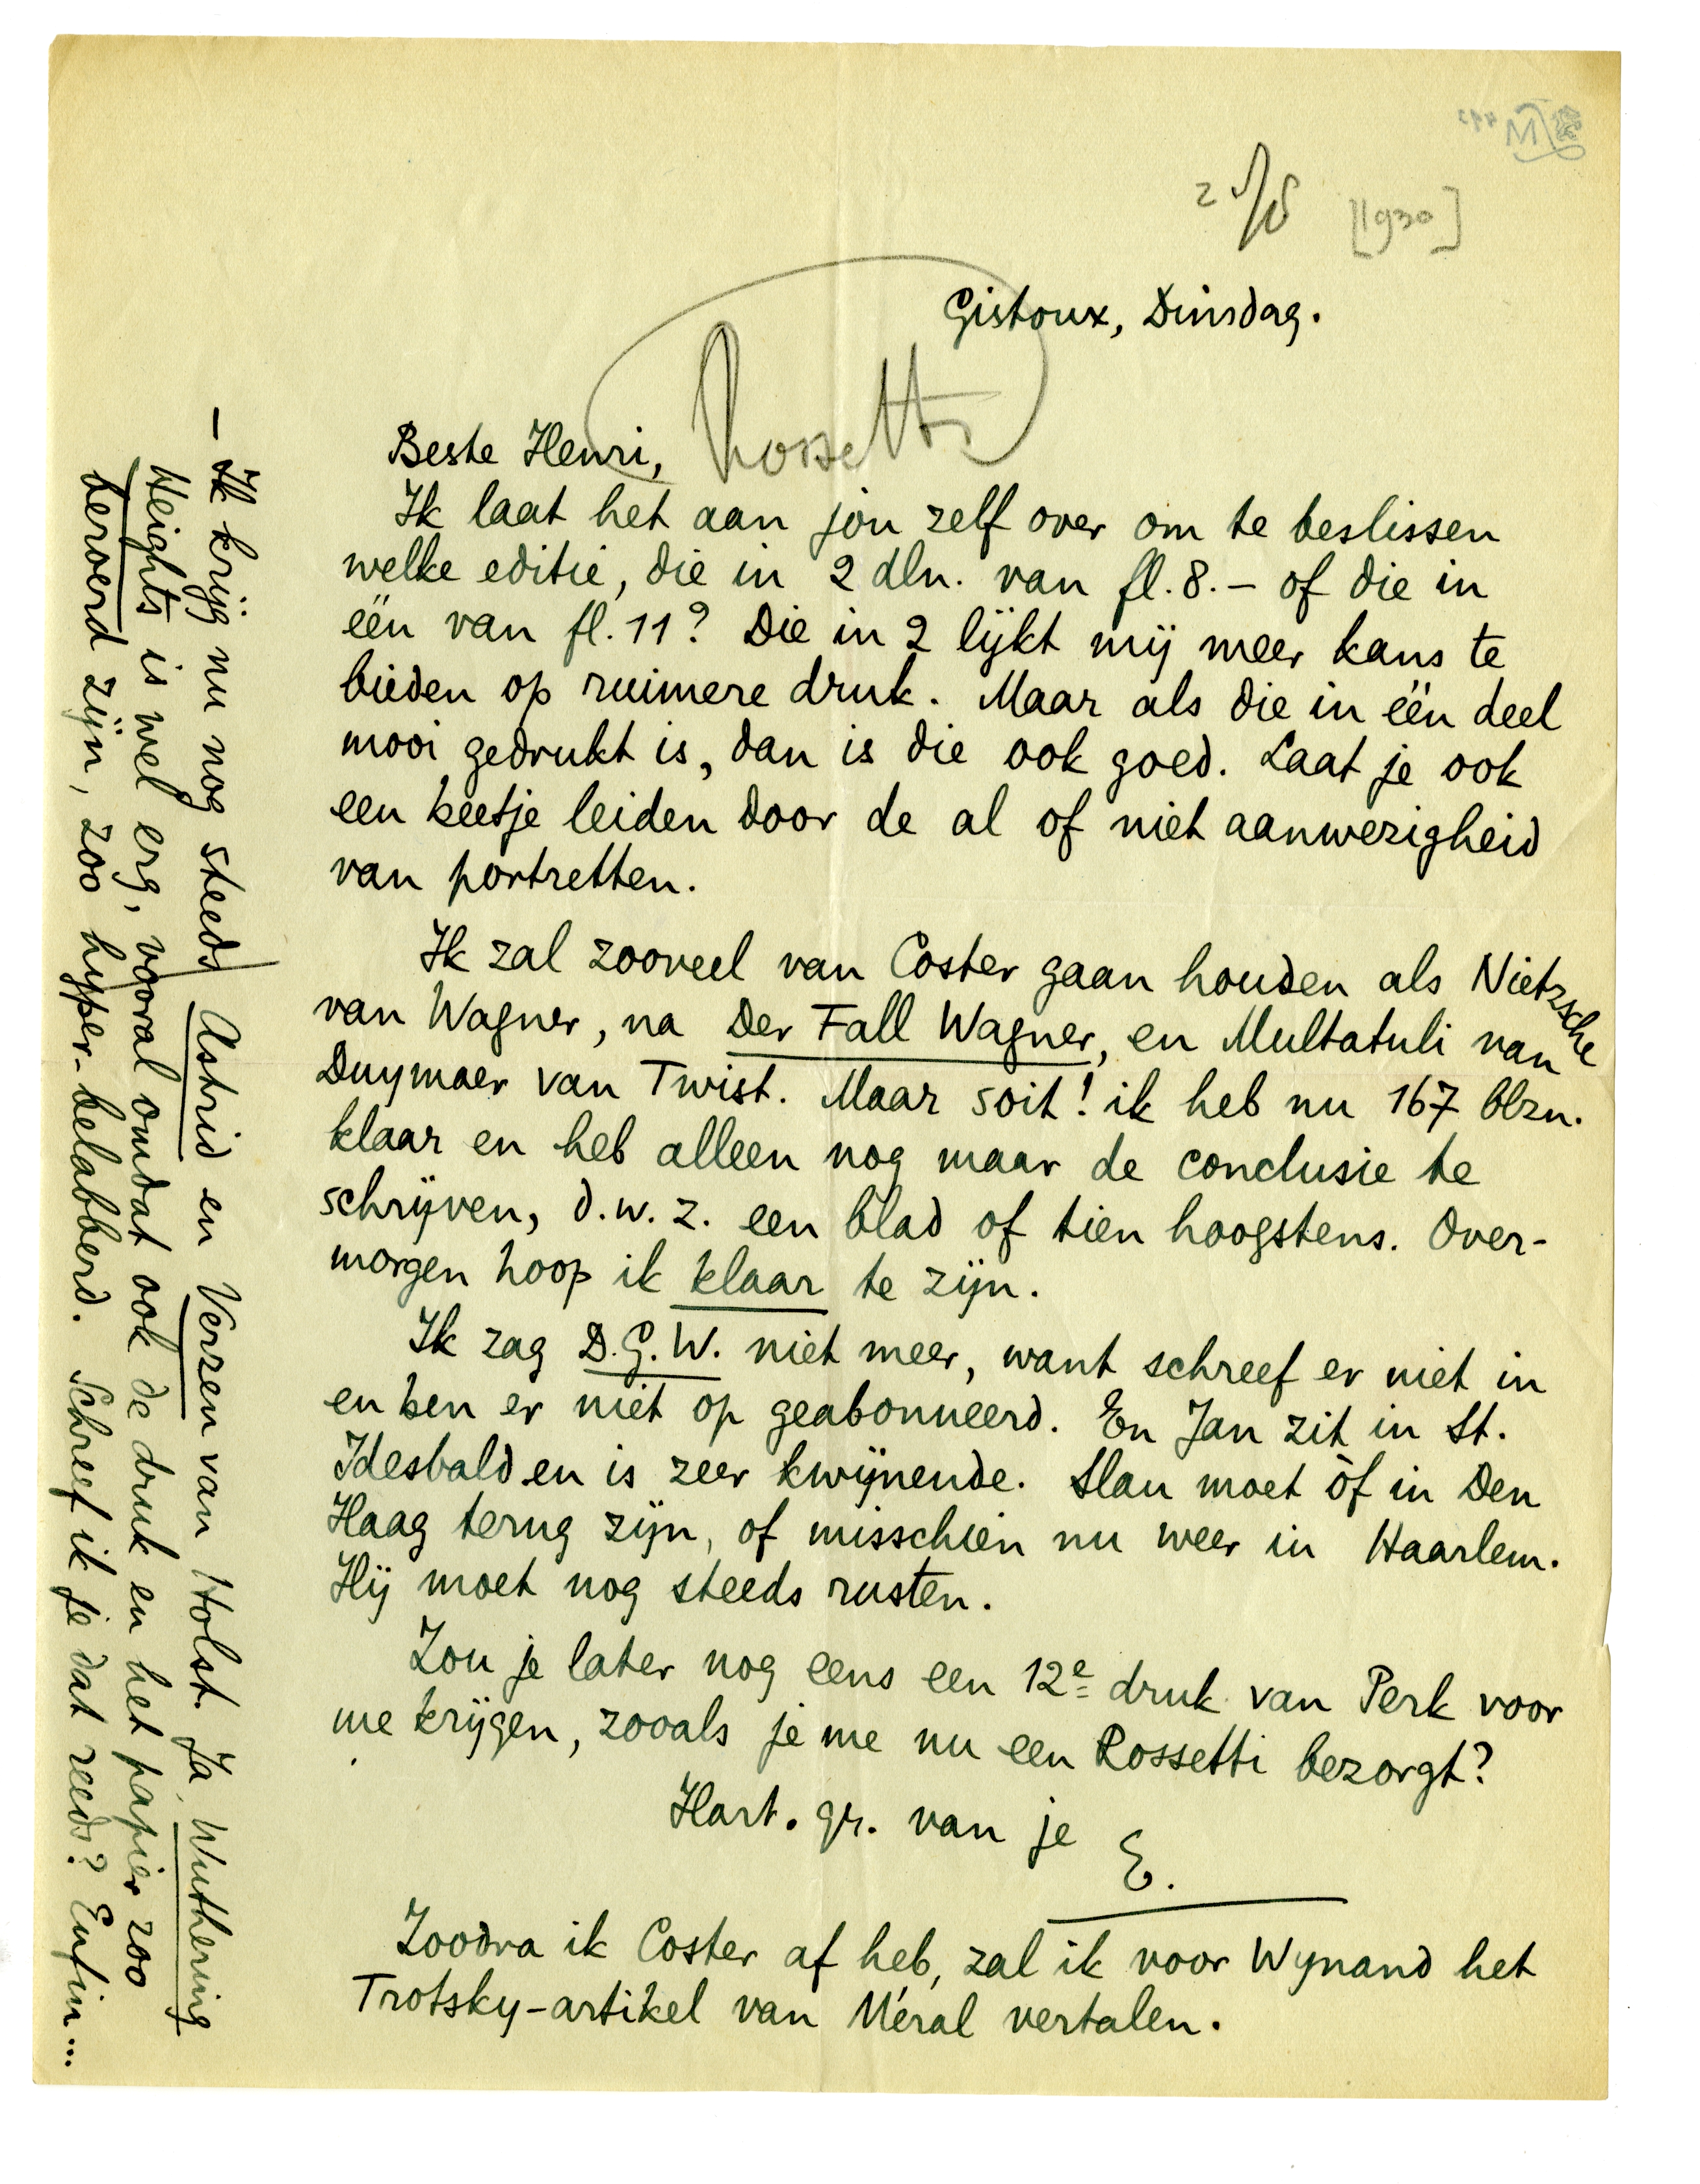 [1930]
Gistoux, Dinsdag.
Rossetti
Beste Henri,
Ik laat het aan jou zelf over om te beslissen
welke editie, die in 2 dln. van fl. 8.– of die in
één van fl. 11? Die in 2 lijkt mij meer kans te
bieden op ruimere druk. Maar als die in één deel
mooi gedrukt is, dan is die ook goed. Laat je ook
een beetje leiden door de al of niet aanwezigheid
van portretten.
Ik zal zooveel van Coster gaan houden als Nietzsche
van Wagner, na Der Fall Wagner, en Multatuli van
Duymaer van Twist. Maar soit! ik heb nu 167 blzn.
klaar en heb alleen nog maar de conclusie te
schrijven, d.w.z. een blad of tien hoogstens. Over-
morgen hoop ik klaar te zijn.
Ik zag D.G.W. niet meer, want schreef er niet in
en ben er niet op geabonneerd. En Jan zit in St.
Idesbald en is zeer kwijnende. Slau moet òf in Den
Haag terug zijn, of misschien nu weer in Haarlem.
Hij moet nog steeds rusten.
Zou je later nog eens een 12e druk van Perk voor
me krijgen, zooals je me nu een Rossetti bezorgt?
Hart. gr. van je
E.
Zoodra ik Coster af heb, zal ik voor Wynand het
Trotsky-artikel van Méral vertalen.
– Ik krijg nu nog steeds Astrid en Verzen van Holst. Ja, Wuthering
Heights is wel erg, vooral omdat ook de druk en het papier zoo
beroerd zijn, zoo hyper-belabberd. Schreef ik je dat reeds? Enfin...